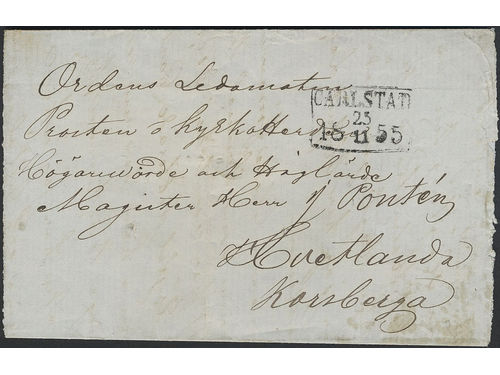 Ordens Ledamoten
Prosten o Kyrkoherden
Högärewörde och Höglärde
Magister Herr J. Pontén
Hvetlanda
Korsberga
CARLSTAD
25
18 11 55